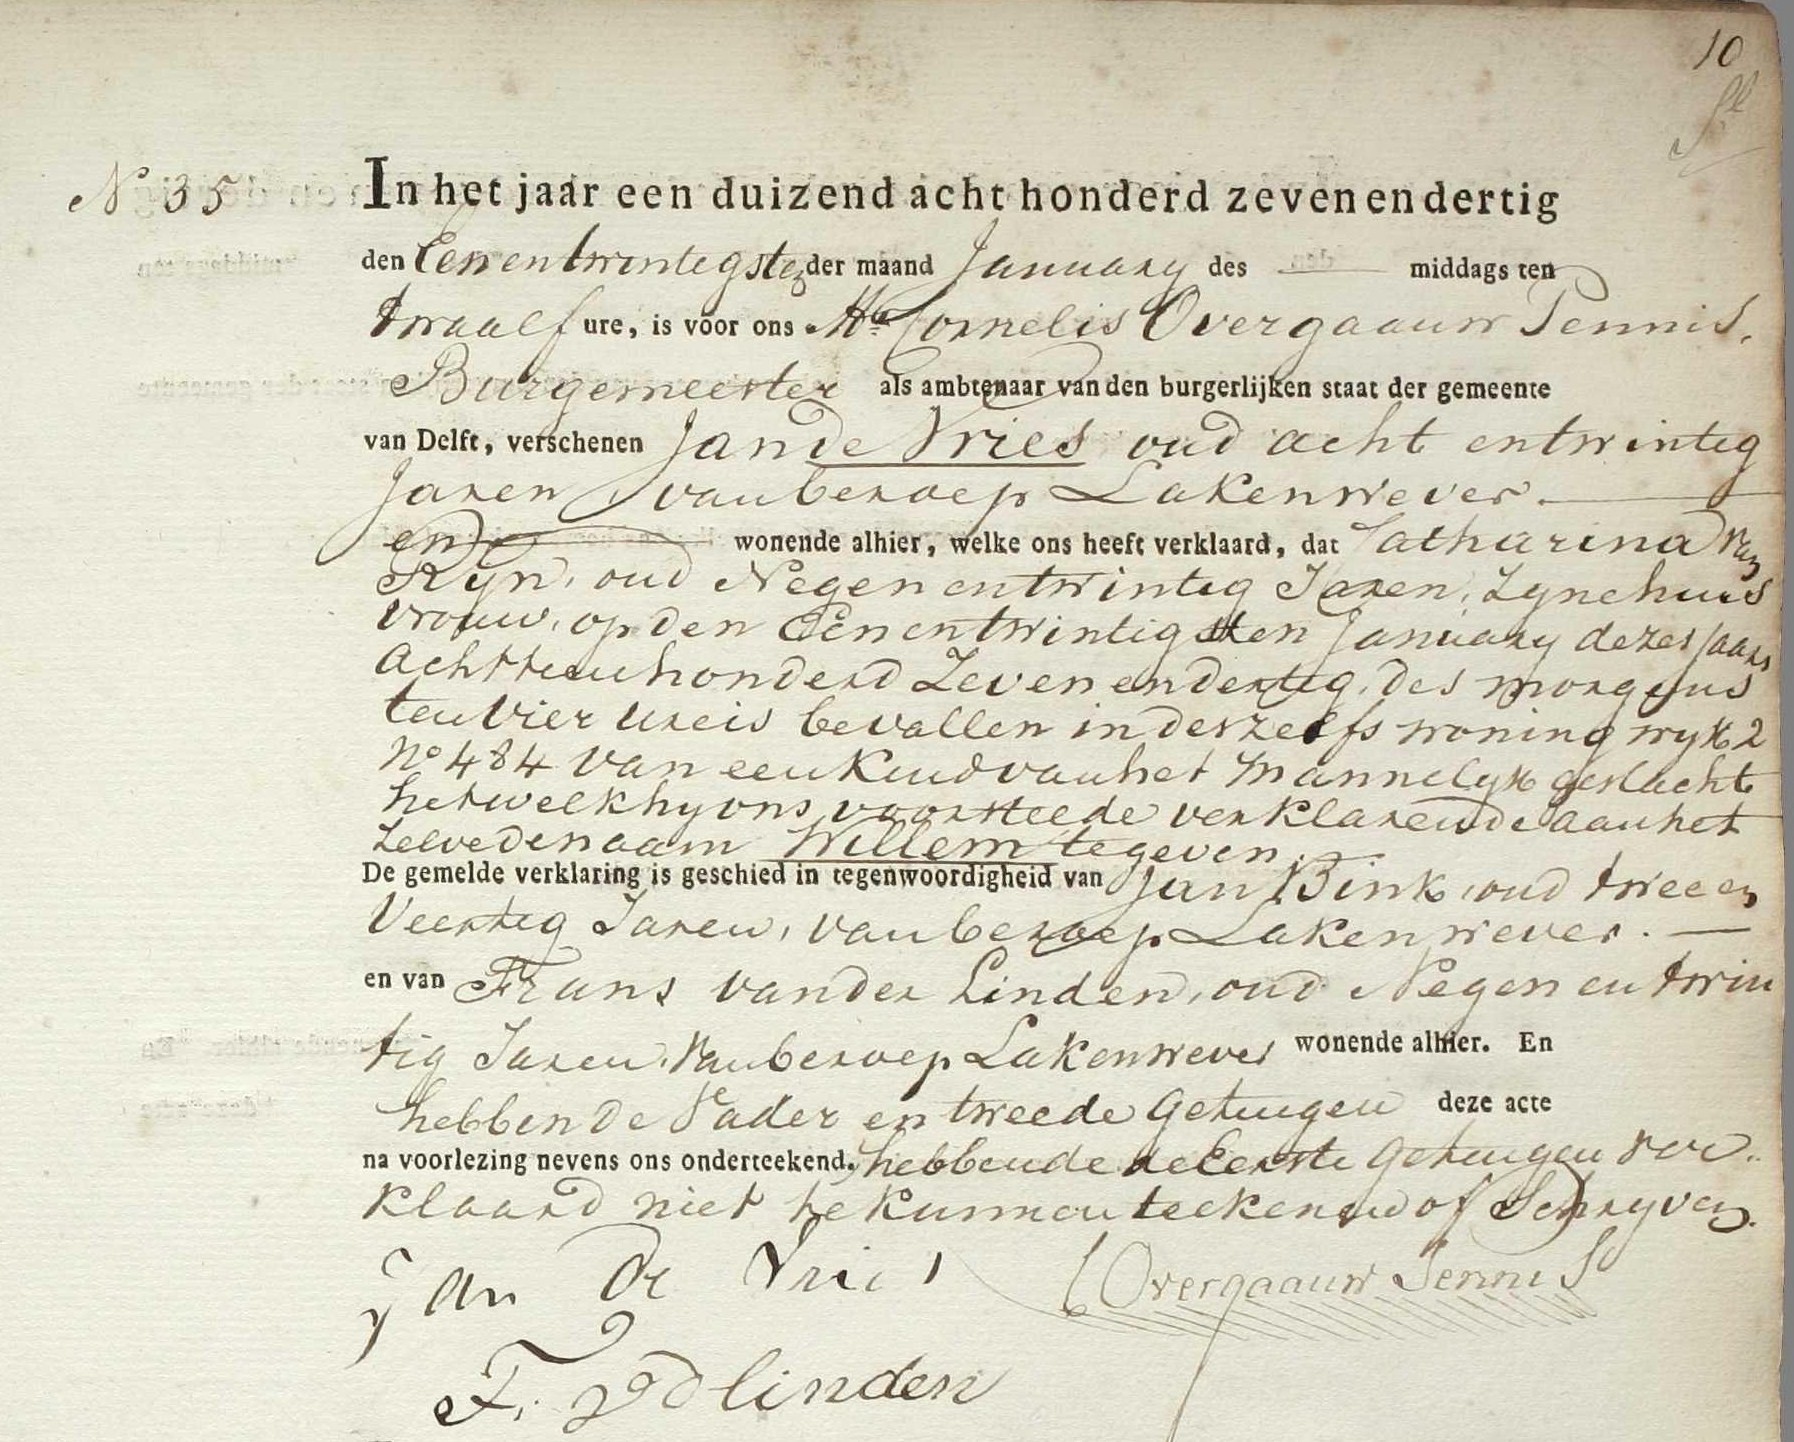 10
N 35
In het jaar een duizend acht honderd zevenendertig
den Eenentwintigsten der maand January des middags ten
twaalf ure, is voor ons Mr Cornelis Overgaauw Pennis,
Burgemeester als ambtenaar van den burgerlijken staat der gemeente
van Delft, verschenen Jan de Vries oud acht entwintig
Jaren, van beroep Lakenwever.
en wonende alhier, welke ons heeft verklaard, dat Catharina van
Ryn, oud Negenentwintig Jaren, Zynehuis
vrouw, op den Eenentwintigsten January dezes Jaars
Achttienhonderd Zevenendertig, des morgens
ten vier ureis bevallen in derzelfs woning wyk 2
No 484 van een Kind van het Mannelyk geslacht
hetwelk hy ons voorsteede verklarende aan het
Zelve de naam Willem te geven.
De gemelde verklaring is geschied in tegenwoordigheid van Jan Bink, oud twee en
Veertig Jaren, van beroep Lakenwever.
en van Frans van der Linden, oud Negen en twin
tig Jaren, van beroep Lakenwever wonende alhier. En
hebben de Vader en tweede Getuigen deze acte
na voorlezing nevens ons onderteekend, hebbende de Eerste Getuigen ver
klaard niet te kunnen teekenen of Schryven.
Jan De Vries C Overgaauw Pennis
F. vd linden